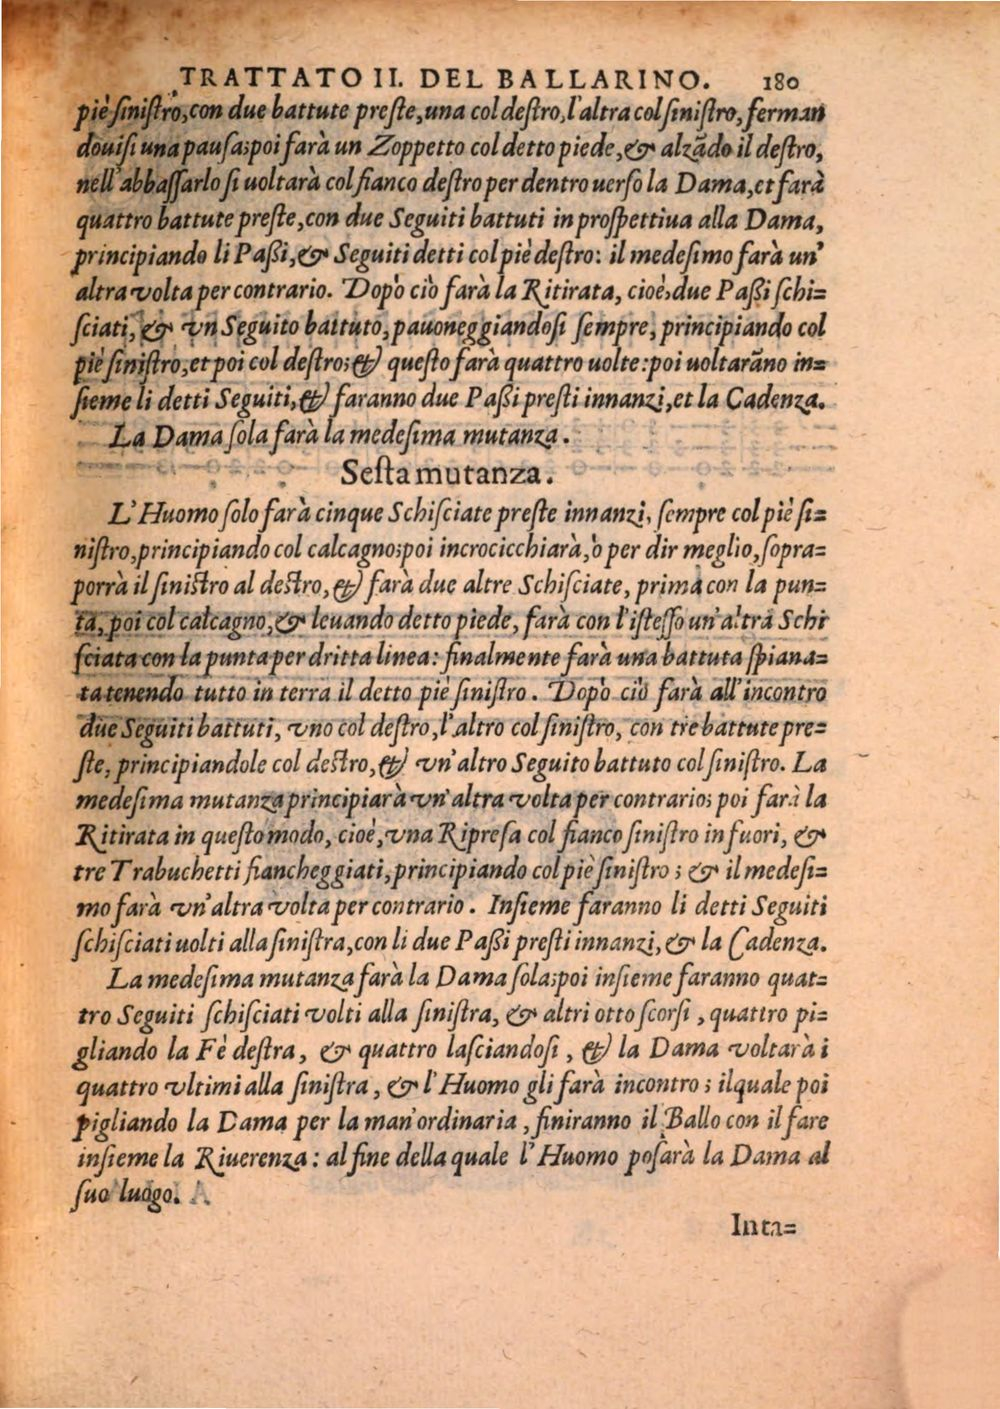 TRATTATO II. DEL BALLARINO. 180
piè ſiniſtro, con due battute preſte, una col deſtro, l'altra col ſiniſtro, ferman
douiſi una pauſa; poi farà un Zoppetto col detto piede, & alzãdo il deſtro,
nell'abbaſſarlo ſi uoltarà col fianco deſtro per dentro uerſo la Dama, et farà
quattro battute preſte, con due Seguiti battuti in proſpettiua alla Dama,
principiando li Paßi, & Seguiti detti col piè deſtro: il medeſimo farà un'
altra volta per contrario. Dopò ciò farà la Ritirata, cioè, due Paßi ſchi=
ſciati, & vn Seguito battuto, pauoneggiandoſi ſempre, principiando col
piè ſiniſtro, et poi col deſtro; & queſto farà quattro uolte: poi uoltarãno in=
ſieme li detti Seguiti, & faranno due Paßi preſti innanzi, et la Cadenza.
La Dama ſola farà la medeſima mutanza.
Seſta mutanza.
L'Huomo ſolo farà cinque Schiſciate preſte innanzi, ſempre col piè ſi=
niſtro, principiando col calcagno; poi incrocicchiarà, ò per dir meglio, ſopra=
porrà il ſiniſtro al deſtro, & farà due altre Schiſciate, prima con la pun=
ta, poi col calcagno, & leuando detto piede, farà con l'iſteſſo un'altra Schi
ſciata con la punta per dritta linea: finalmente farà una battuta ſpiana=
ta tenendo tutto in terra il detto piè ſiniſtro. Dopò ciò farà all'incontro
due Seguiti battuti, vno col deſtro, l'altro col ſiniſtro, con tre battute pre=
ſte, principiandole col deſtro, & vn'altro Seguito battuto col ſiniſtro. La
medeſima mutanza principiarà vn'altra volta per contrario; poi farà la
Ritirata in queſto modo, cioè, vna Ripreſa col fianco ſiniſtro in fuori, &
tre Trabuchetti fiancheggiati, principiando col piè ſiniſtro; & il medeſi=
mo farà vn'altra volta per contrario. Inſieme faranno li detti Seguiti
ſchiſciati uolti alla ſiniſtra, con li due Paßi preſti innanzi, & la Cadenza.
La medeſima mutanza farà la Dama ſola; poi inſieme faranno quat=
tro Seguiti ſchiſciati volti alla ſiniſtra, & altri otto ſcorſi, quattro pi=
gliando la Fè deſtra, & quattro laſciandoſi, & la Dama voltarà i
quattro vltimi alla ſiniſtra, & l'Huomo gli farà incontro; ilquale poi
pigliando la Dama per la man'ordinaria, finiranno il Ballo con il fare
inſieme la Riuerenza: al fine della quale l'Huomo poſarà la Dama al
ſuo luogo.
Inta=